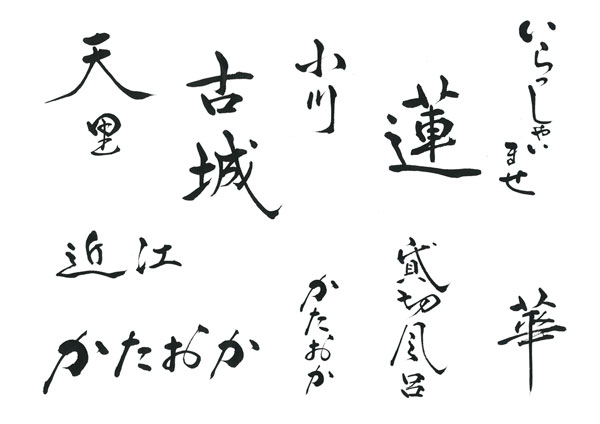 いらっしゃいませ
蓮
小川
古城
天里
華
貸切風呂
かたおか
近江
かたおか